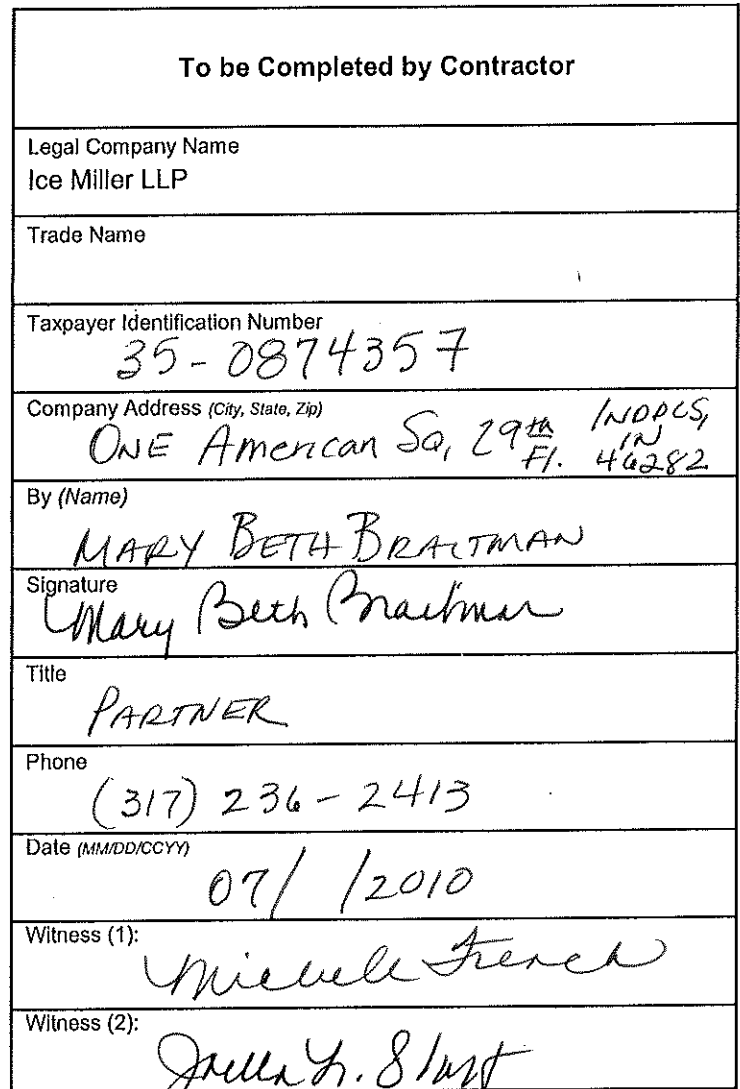 To be Completed by Contractor
Legal Company Name
Ice Miller LLP
Trade Name
Taxpayer Identification Number
35-0874357
Company Address (City, State, Zip)
ONE American Sq, 29th Fl. INDPLS, IN 46282
By (Name)
MARY BETH BRAITMAN
Signature
Mary Beth Braitman
Title
PARTNER
Phone
(317) 236-2413
Date (MM/DD/CCYY)
07/ /2010
Witness (1):
Michele French
Witness (2):